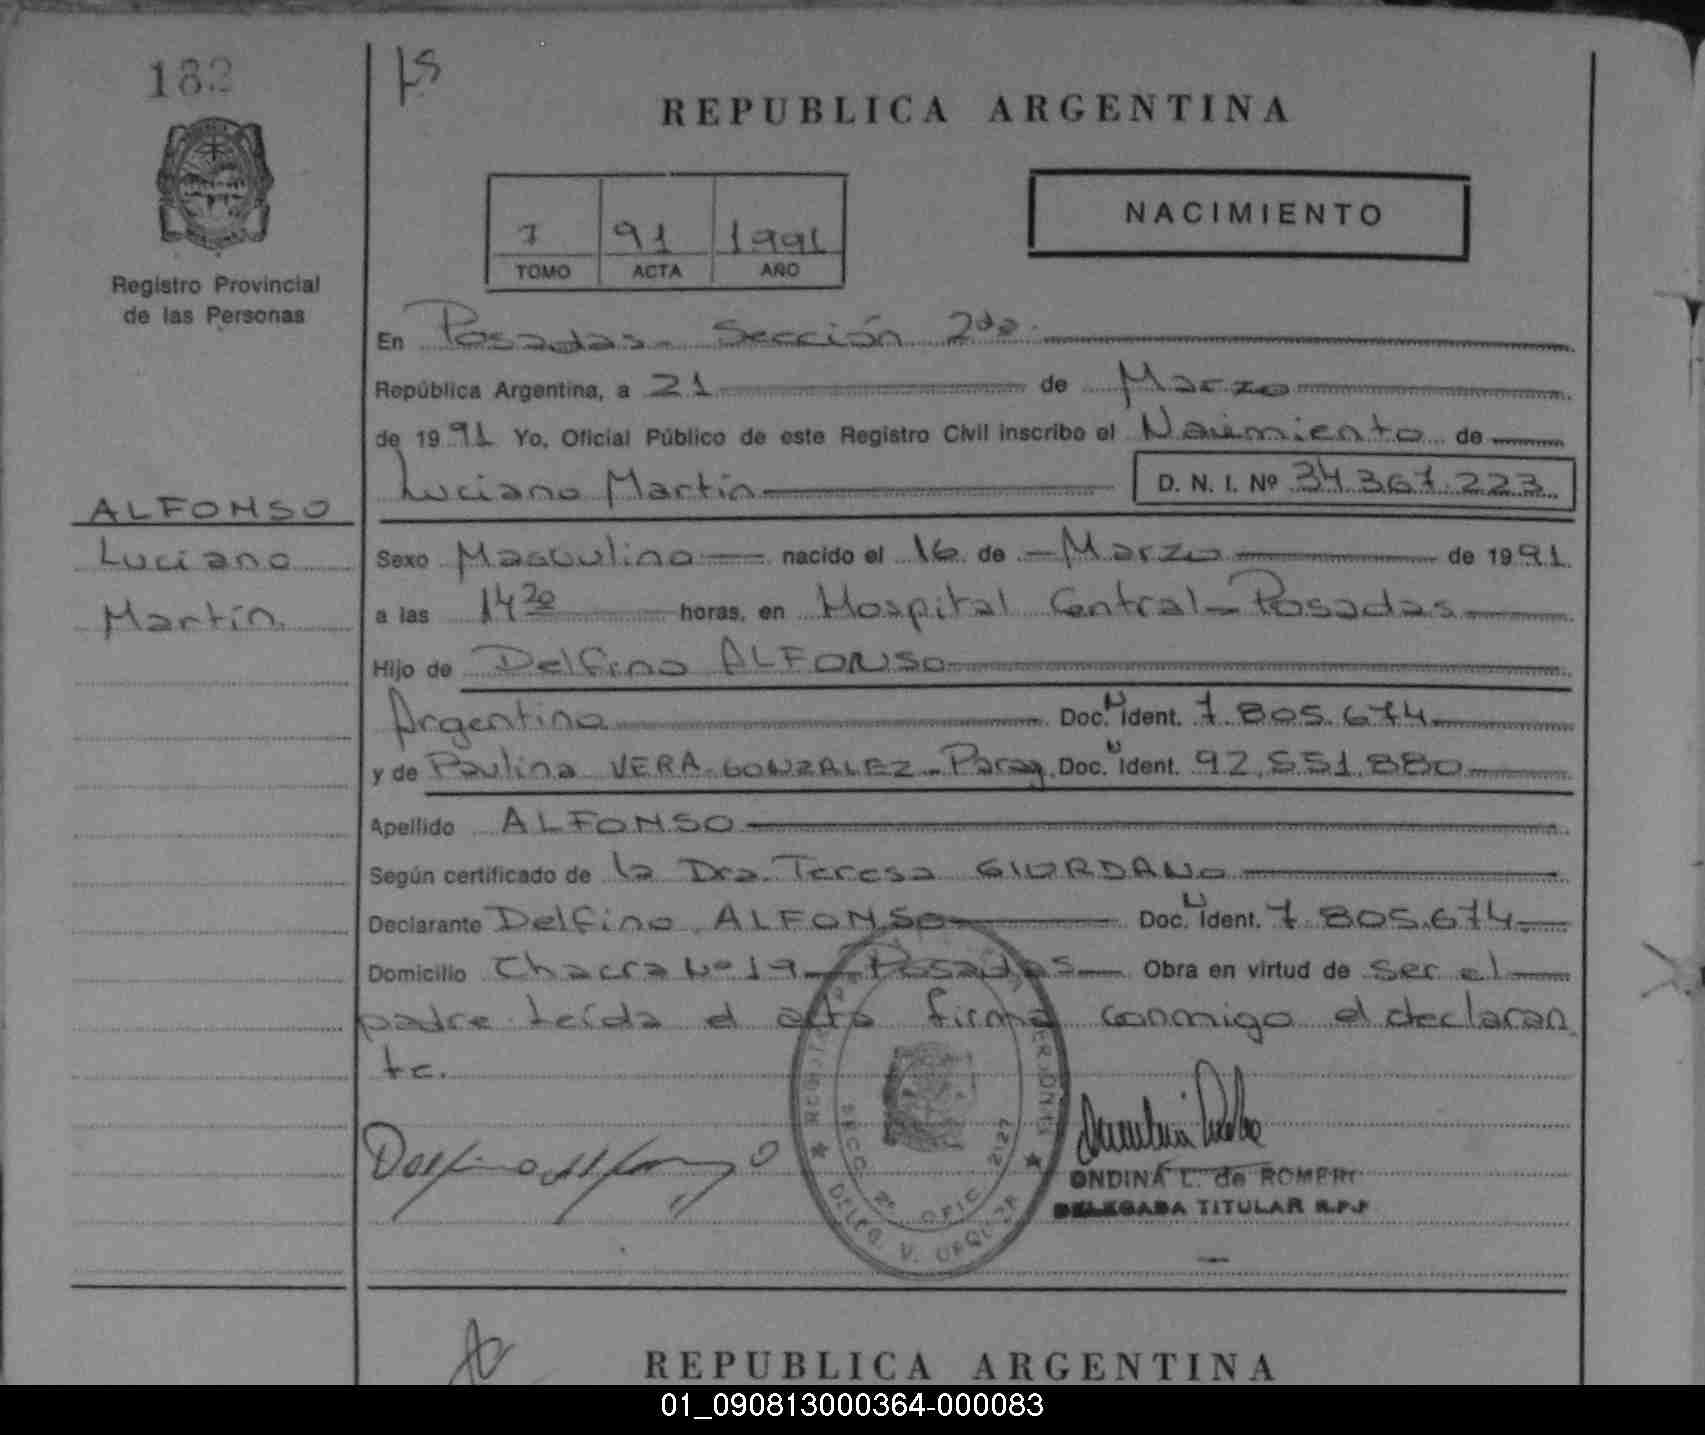 182
REPUBLICA ARGENTINA
1 91 1991
TOMO ACTA AÑO
NACIMIENTO
Registro Provincial
de las Personas
ALFONSO
Luciano
Martín
En Posadas - Sección 2da
República Argentina, a 21 de Marzo
de 1991 Yo, Oficial Público de este Registro Civil inscribo el Nacimiento de
Luciano Martín D. N. I. Nº 34.367.223
Sexo Masculino nacido el 16 de Marzo de 1991
a las 14 20 horas, en Hospital Central - Posadas
Hijo de Delfino ALFONSO
Argentino Doc. Ident. 7.805.674
y de Paulina VERA GONZALEZ - Parag. Doc. Ident. 92.551.880
Apellido ALFONSO
Según certificado de la Dra. Teresa GIORDANO
Declarante Delfino ALFONSO Doc. Ident. 7.805.674
Domicilio Chacra Nº 19 - Posadas Obra en virtud de ser el
padre leída el acta firma conmigo el declaran
te.
Delfino Alfonso
ONDINA L. de ROMERO
DELEGADA TITULAR R.P.P
SECC. 2ª OFIC 2127
DELEG. V. URQUIZA
REPUBLICA ARGENTINA
01_090813000364-000083